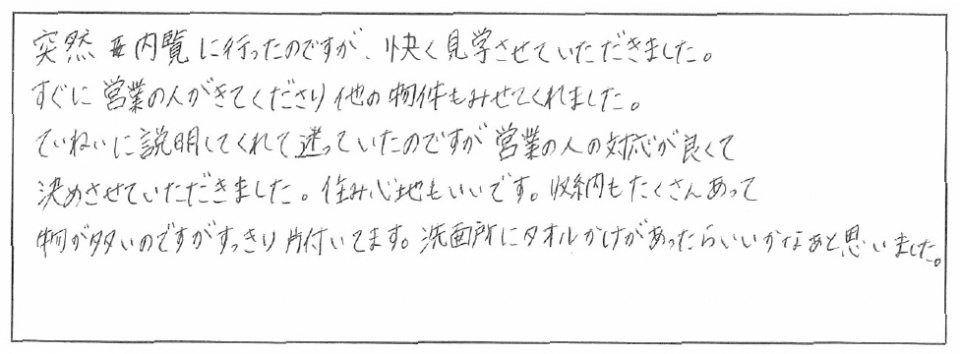 突然内覧に行ったのですが、快く見学させていただきました。
すぐに営業の人がきてくださり他の物件もみせてくれました。
ていねいに説明してくれて迷っていたのですが営業の人の対応が良くて
決めさせていただきました。住み心地もいいです。収納もたくさんあって
物が多いのですがすっきり片付いてます。洗面所にタオルかけがあったらいいかなぁと思いました。